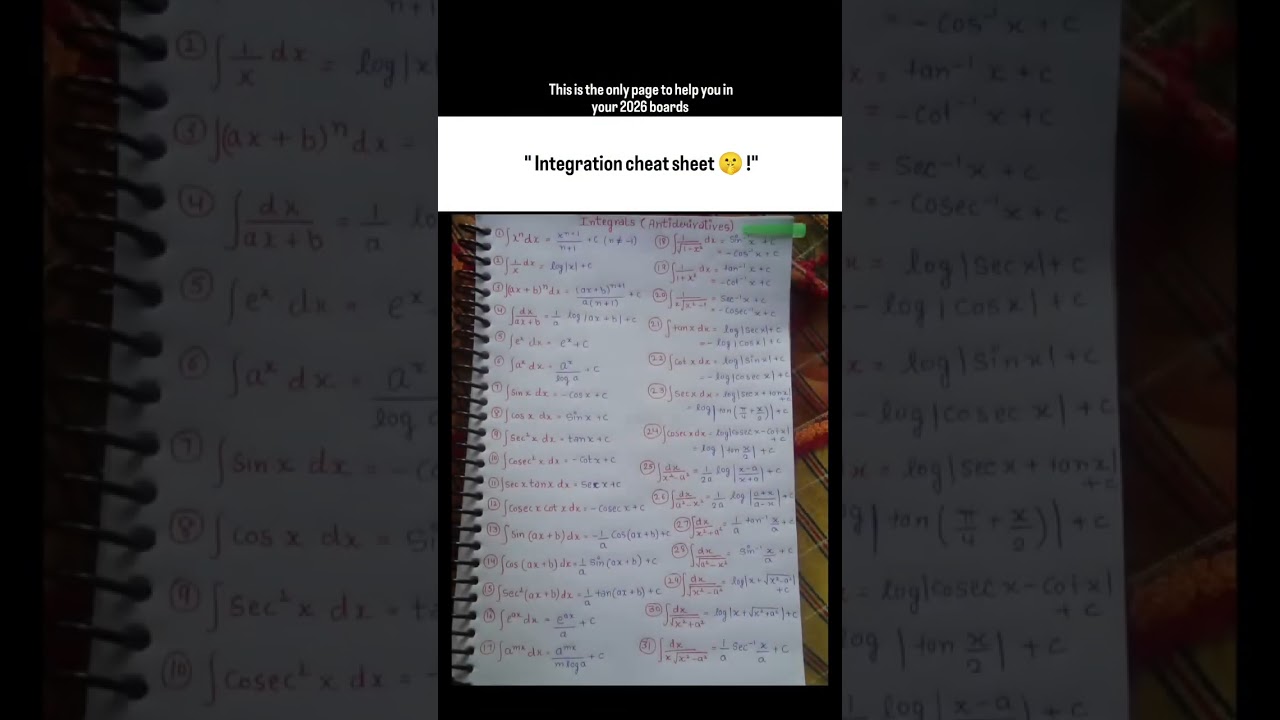 This is the only page to help you in
your 2026 boards
" Integration cheat sheet 🤫 !"
Integrals (Antiderivatives)
① ∫xⁿdx = xⁿ⁺¹/n+1 +c (n ≠ -1)
② ∫1/x dx = log|x| +c
③ ∫(ax+b)ⁿdx = (ax+b)ⁿ⁺¹/a(n+1) +c
④ ∫dx/ax+b = 1/a log|ax+b|+c
⑤ ∫eˣ dx = eˣ+c
⑥ ∫aˣ dx = aˣ/log a +c
⑦ ∫sinx dx = -cosx+c
⑧ ∫cosx dx = sinx+c
⑨ ∫sec²x dx = tanx+c
⑩ ∫cosec²x dx = -cotx+c
⑪ ∫secx tanx dx = secx+c
⑫ ∫cosec x cot x dx = -cosec x+c
⑬ ∫sin(ax+b)dx = -1/a cos(ax+b)+c
⑭ ∫cos(ax+b)dx = 1/a sin(ax+b)+c
⑮ ∫sec²(ax+b)dx = 1/a tan(ax+b)+c
⑯ ∫eᵃˣdx = eᵃˣ/a +c
⑰ ∫aᵐˣdx = aᵐˣ/m log a +c
⑱ ∫1/√1-x² dx = sin⁻¹x+c
= -cos⁻¹x+c
⑲ ∫1/1+x² dx = tan⁻¹x+c
= -cot⁻¹x+c
⑳ ∫1/x√x²-1 = sec⁻¹x+c
= -cosec⁻¹x+c
㉑ ∫tanx dx = log|secx|+c
= -log|cosx|+c
㉒ ∫cot x dx = log|sinx|+c
= -log|cosec x|+c
㉓ ∫secx dx = log|secx+tanx|
+c
= log|tan(π/4+x/2)|+c
㉔ ∫cosecx dx = log|cosec x-cotx|
+c
= log|tan x/2|+c
㉕ ∫dx/x²-a² = 1/2a log|x-a/x+a|+c
㉖ ∫dx/a²-x² = 1/2a log|a+x/a-x|+c
㉗ ∫dx/x²+a² = 1/a tan⁻¹ x/a +c
㉘ ∫dx/√a²-x² = sin⁻¹ x/a +c
㉙ ∫dx/√x²-a² = log|x+√x²-a²|
+c
㉚ ∫dx/√x²+a² = log|x+√x²+a²|+c
㉛ ∫dx/x√x²-a² = 1/a sec⁻¹ x/a +c